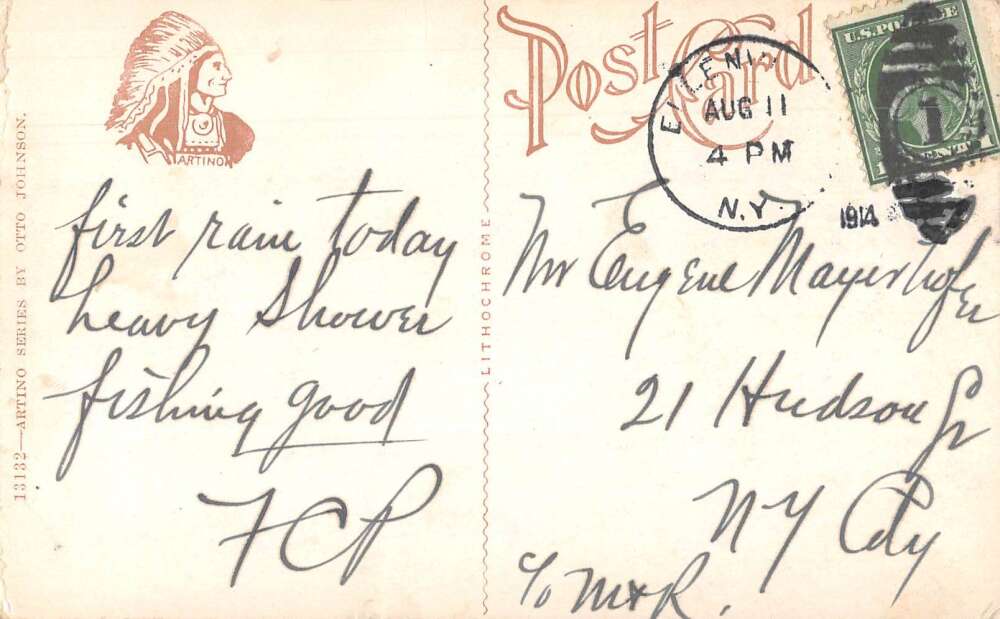 13132—ARTINO SERIES BY OTTO JOHNSON.
ARTINO
first rain today
heavy shower
fishing good
FCP
LITHOCHROME
Post Card
AUG 11
4 PM
N.Y.
1914
U.S. POSTAGE
1
1
Mr Eugene Mayerhofer
21 Hudson St
NY City
c/o M&R.